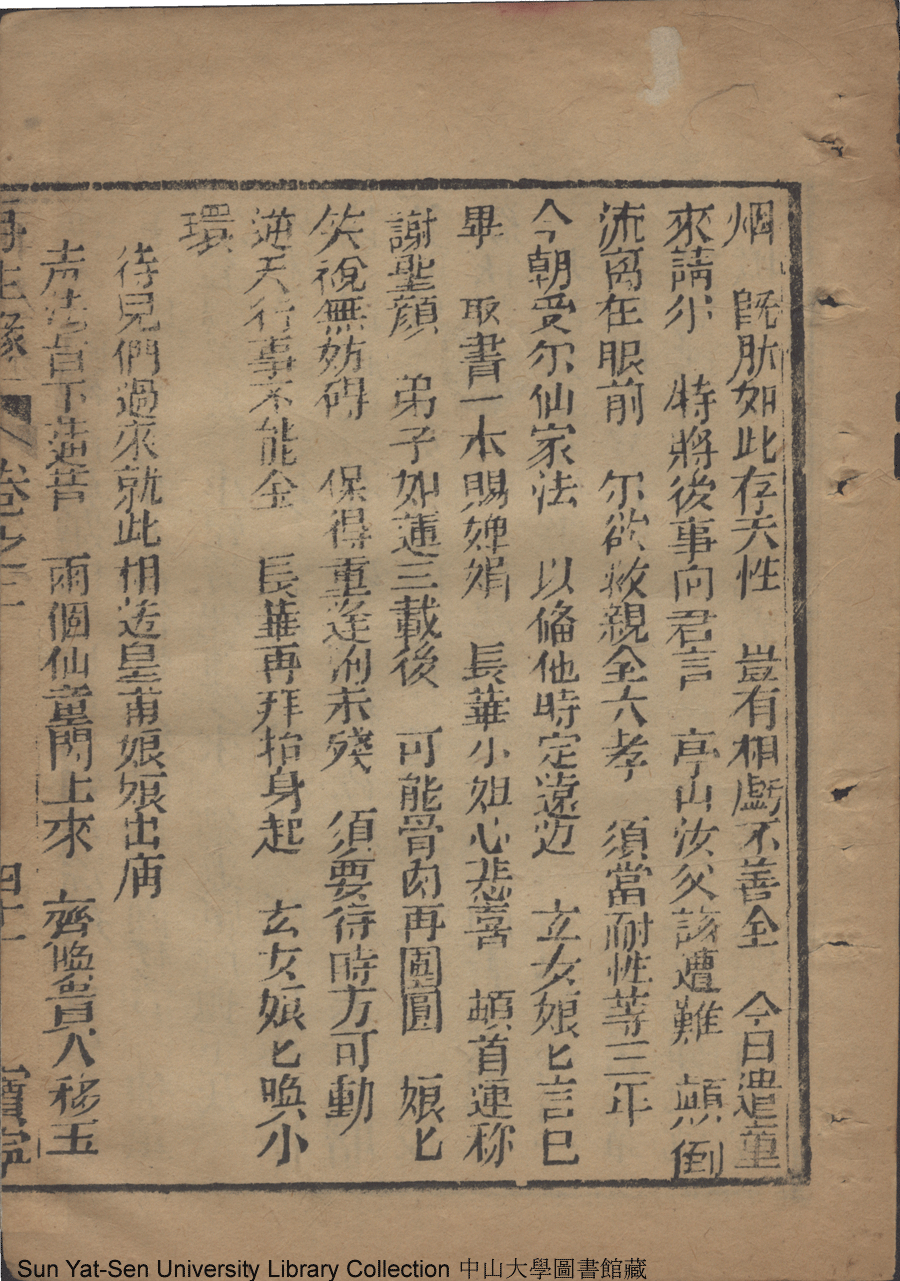 烟 既肰如此存天性 豈有相戲不善全 今日遣童
來請尔 特將後事向君言 亭山汝父該遭難 顛倒
流离在眼前 尔欲救親全六孝 須當耐性等三年
今朝受尔仙家法 以俻他時定遠边 玄女娘匕言巳
畢 取書一本賜婵娟 長華小姐心悲喜 頓首連称
謝聖顔 弟子如蓮三載後 可能骨肉再團圓 娘匕
笑說無妨碍 保得重逢尚未殘 須要待時方可動
逆天行事不能全 長華再拜抬身起 玄女娘匕喚小
環
待児們過來就此相送皇甫娘娘出庙
法旨下 兩個仙童閃上來 齊喚貴人移玉
再生縁 卷之
Sun Yat-Sen University Library Collection 中山大學圖書館藏